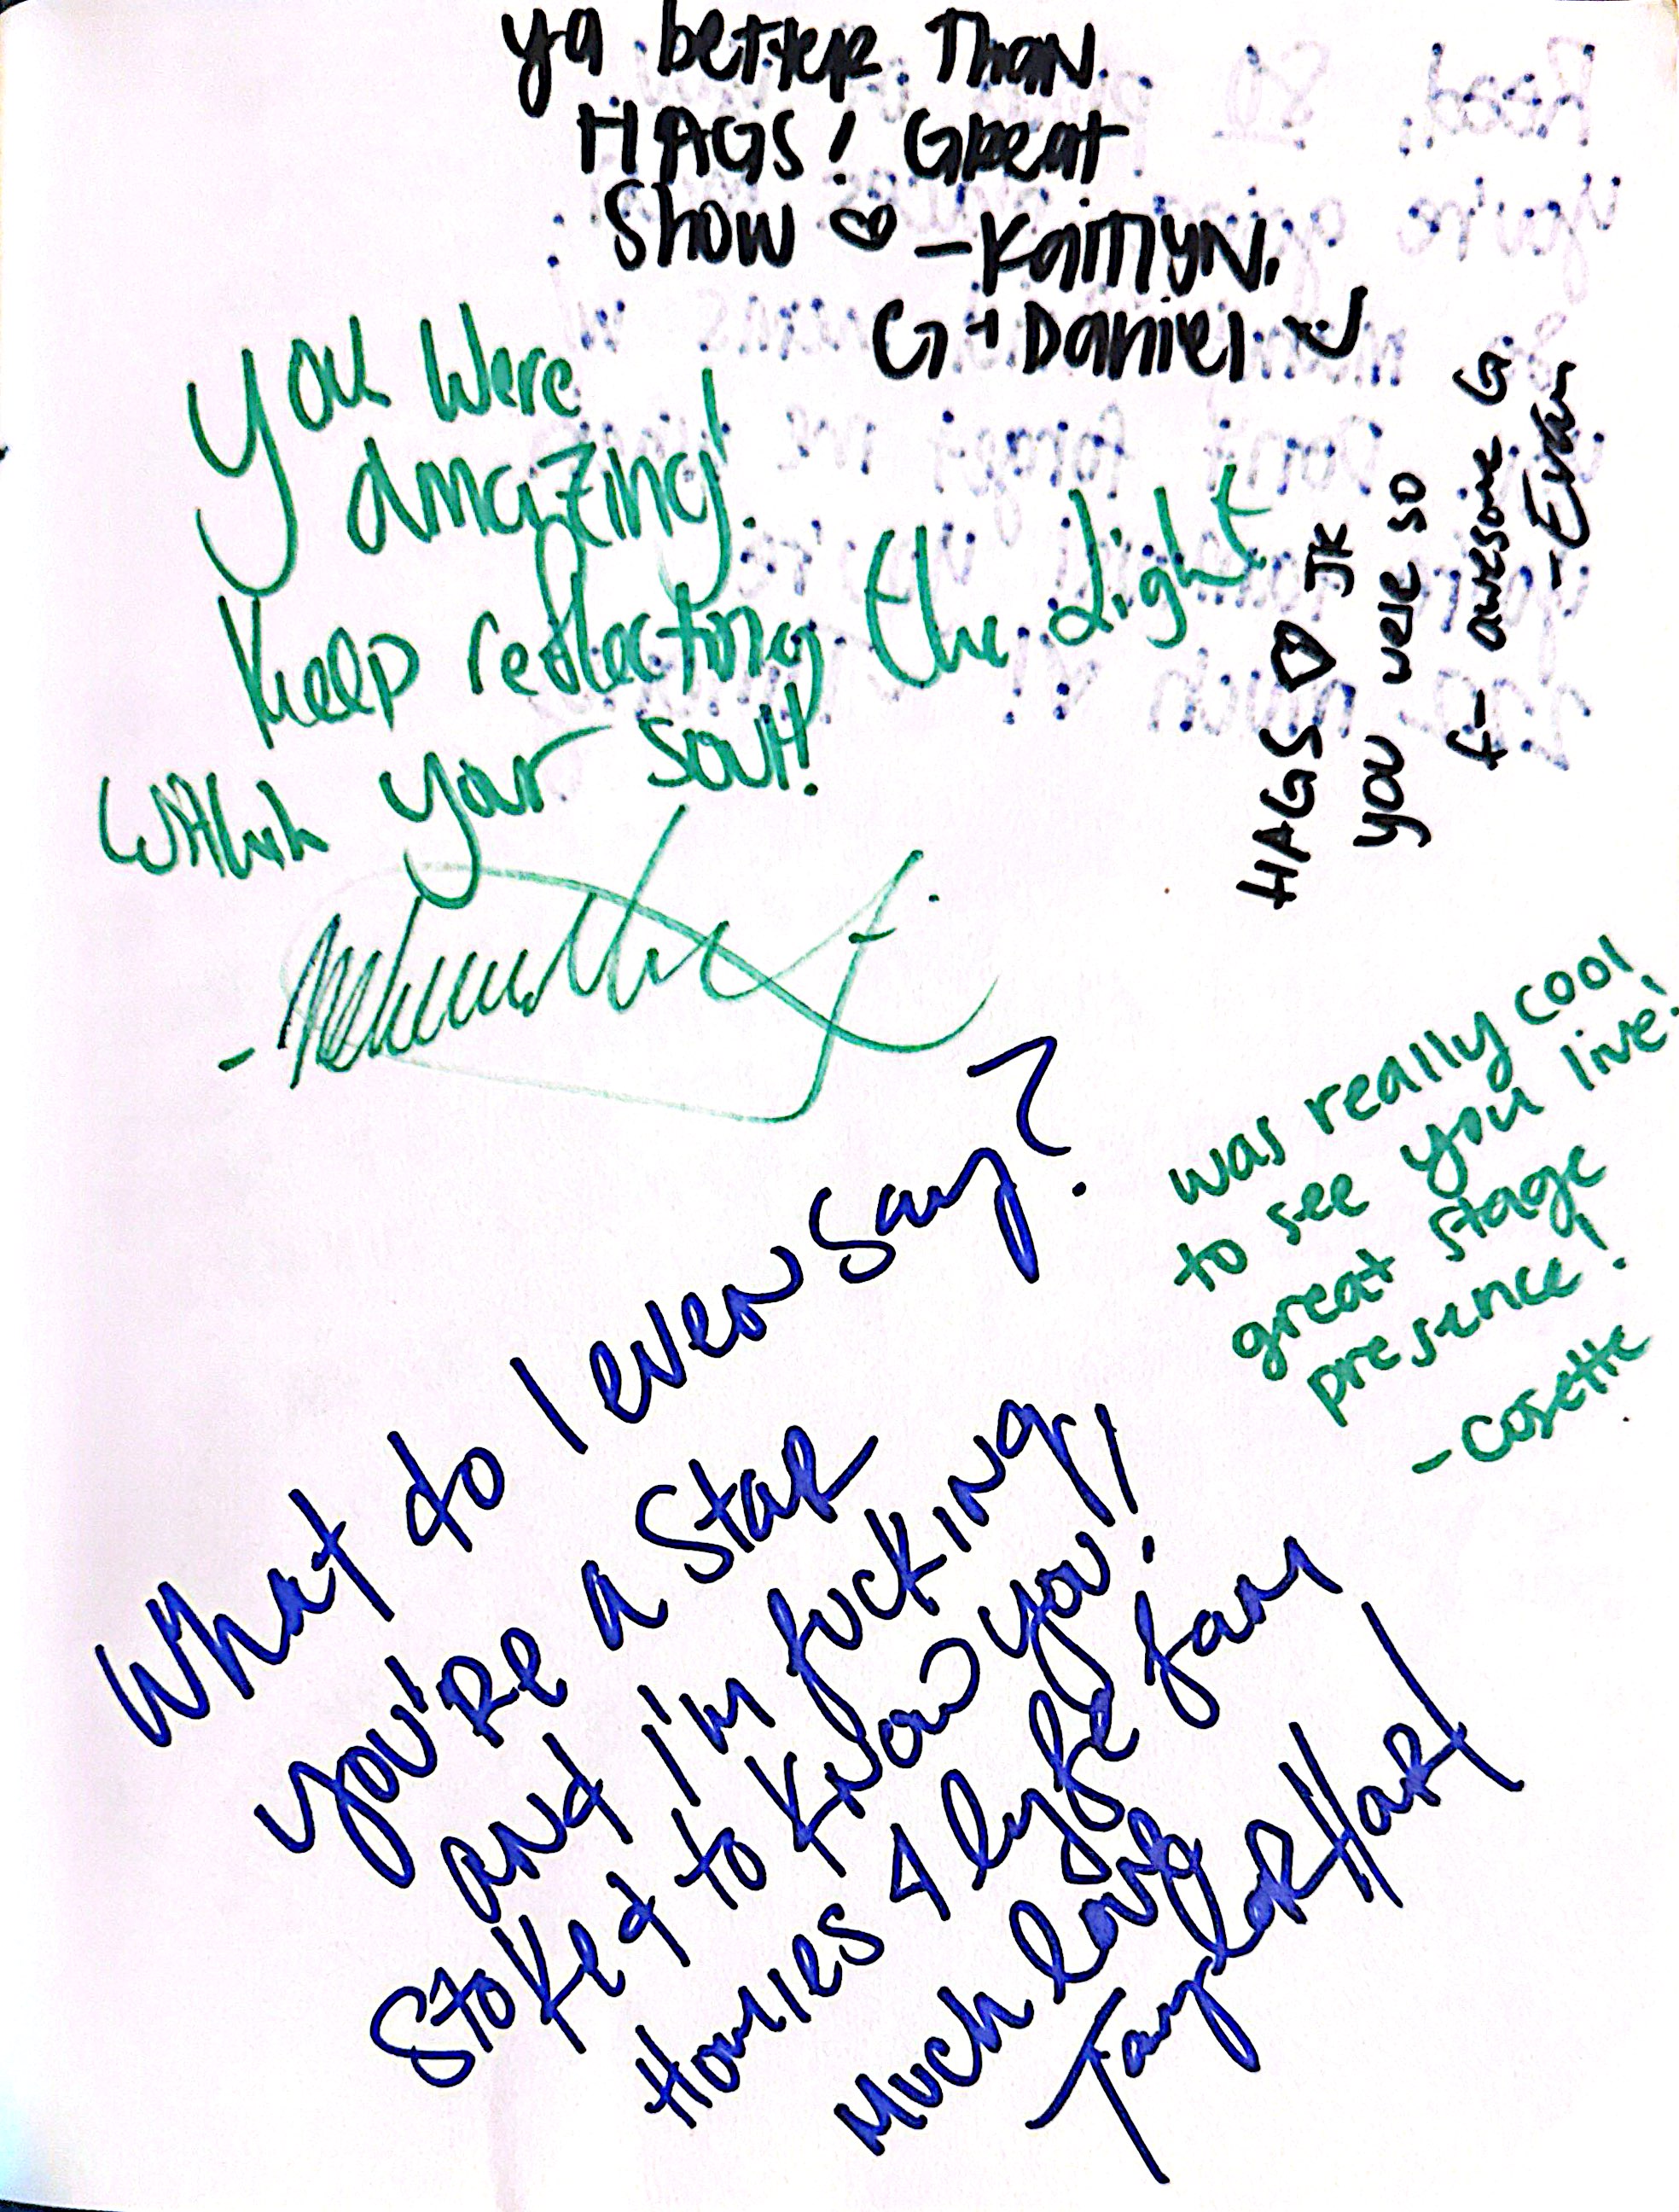 ya better Than
HAGS! Great
Show ♡ -Kaitlyn.
G + Daniel :)
You Were
amazing!
Keep reflecting the Light
within your soul!
HAGS ♡ JK
you were so
f- awesome G.
-Evan
was really cool
to see you live!
great stage
presence!
-Cosette
What do I even say?
you're a Star
and I'm fucking
Stoked to Know you!
Homies 4 lyfe fam
Much love
Taylor Hart